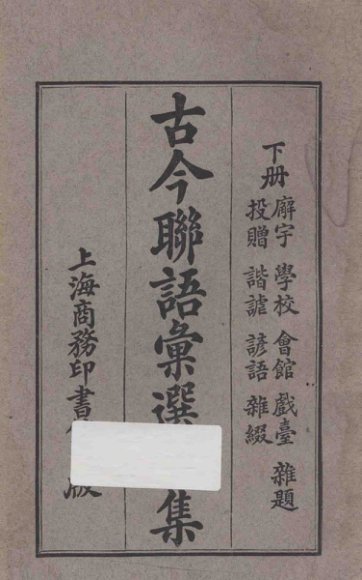 下册 廨宇 學校 會館 戲臺 雜題
投贈 諧謔 諺語 雜綴
古今聯語彙選集
上海商務印書版